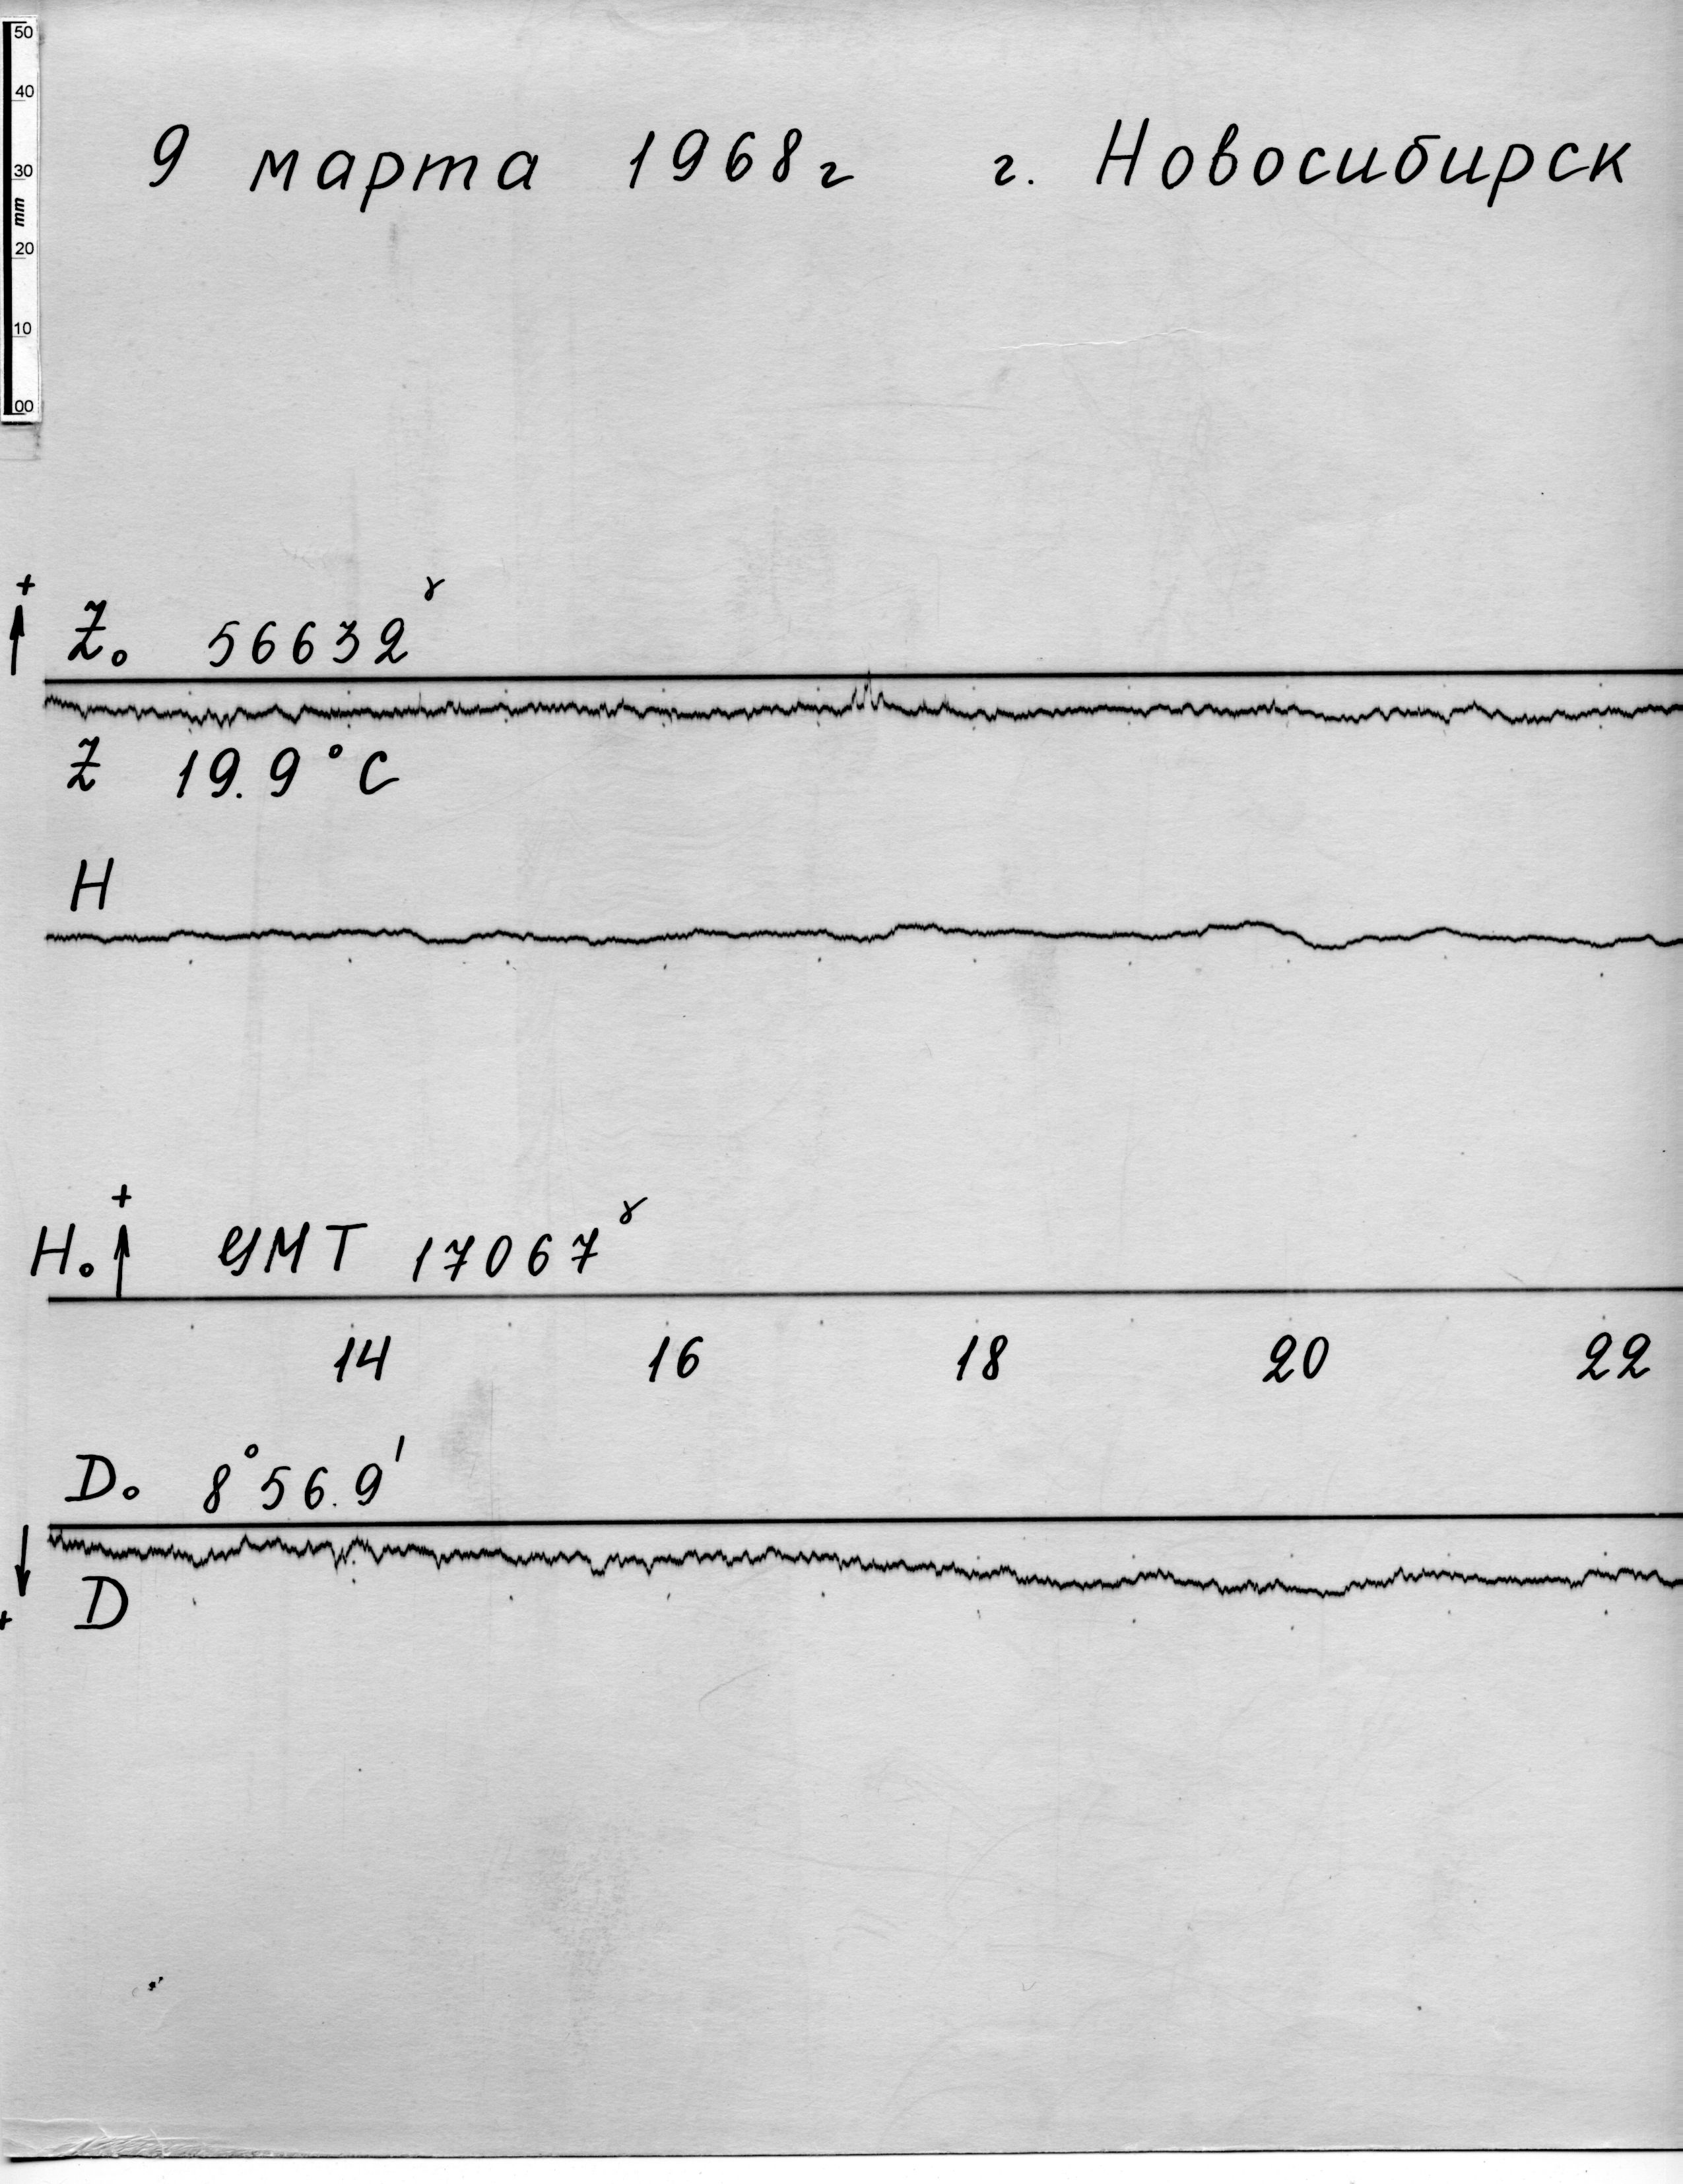 50
40
30
mm
20
10
00
9 марта 1968г г. Новосибирск
+
Z₀ 56632ᵞ
Z 19.9°C
H
+
H₀ GMT 17067ᵞ
14 16 18 20 22
D₀ 8°56.9'
D
+